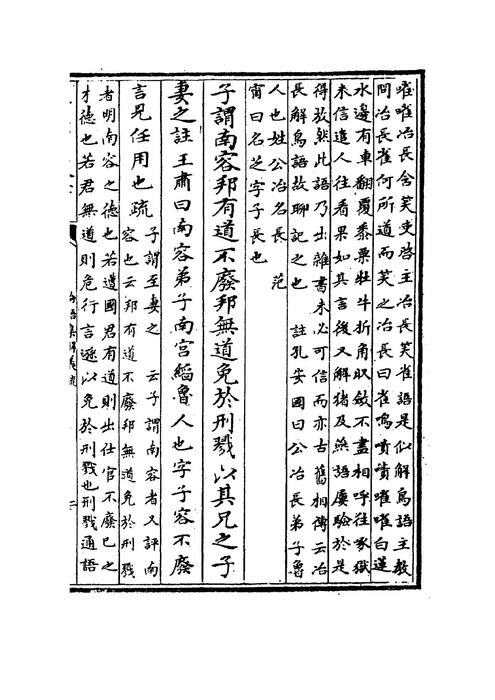 嗺嗺冶長含笑吏啓主冶長笑雀語是似解鳥語主教
問冶長雀何所道而笑之冶長曰雀鳴嘖嘖嗺嗺白蓮
水邊有車翻覆黍粟牡牛折角収斂不盡相呼往啄獄
未信遣人往看果如其言後又解猪及燕語屢驗於是
得放然此語乃出雜書未必可信而亦古舊相傳云冶
長解鳥語故聊記之也　註孔安國曰公冶長弟子魯
人也姓公冶名長　范
甯曰名芝字子長也
子謂南容邦有道不廢邦無道免於刑戮以其兄之子
妻之註王肅曰南容弟子南宫縚魯人也字子容不廢
言見任用也疏
子謂至妻之　云子謂南容者又評南
容也云邦有道不廢邦無道免於刑戮
者明南容之德也若遭國君有道則出仕官不廢己之
才德也若君無道則危行言遜以免於刑戮也刑戮通語
論語集解義疏
二